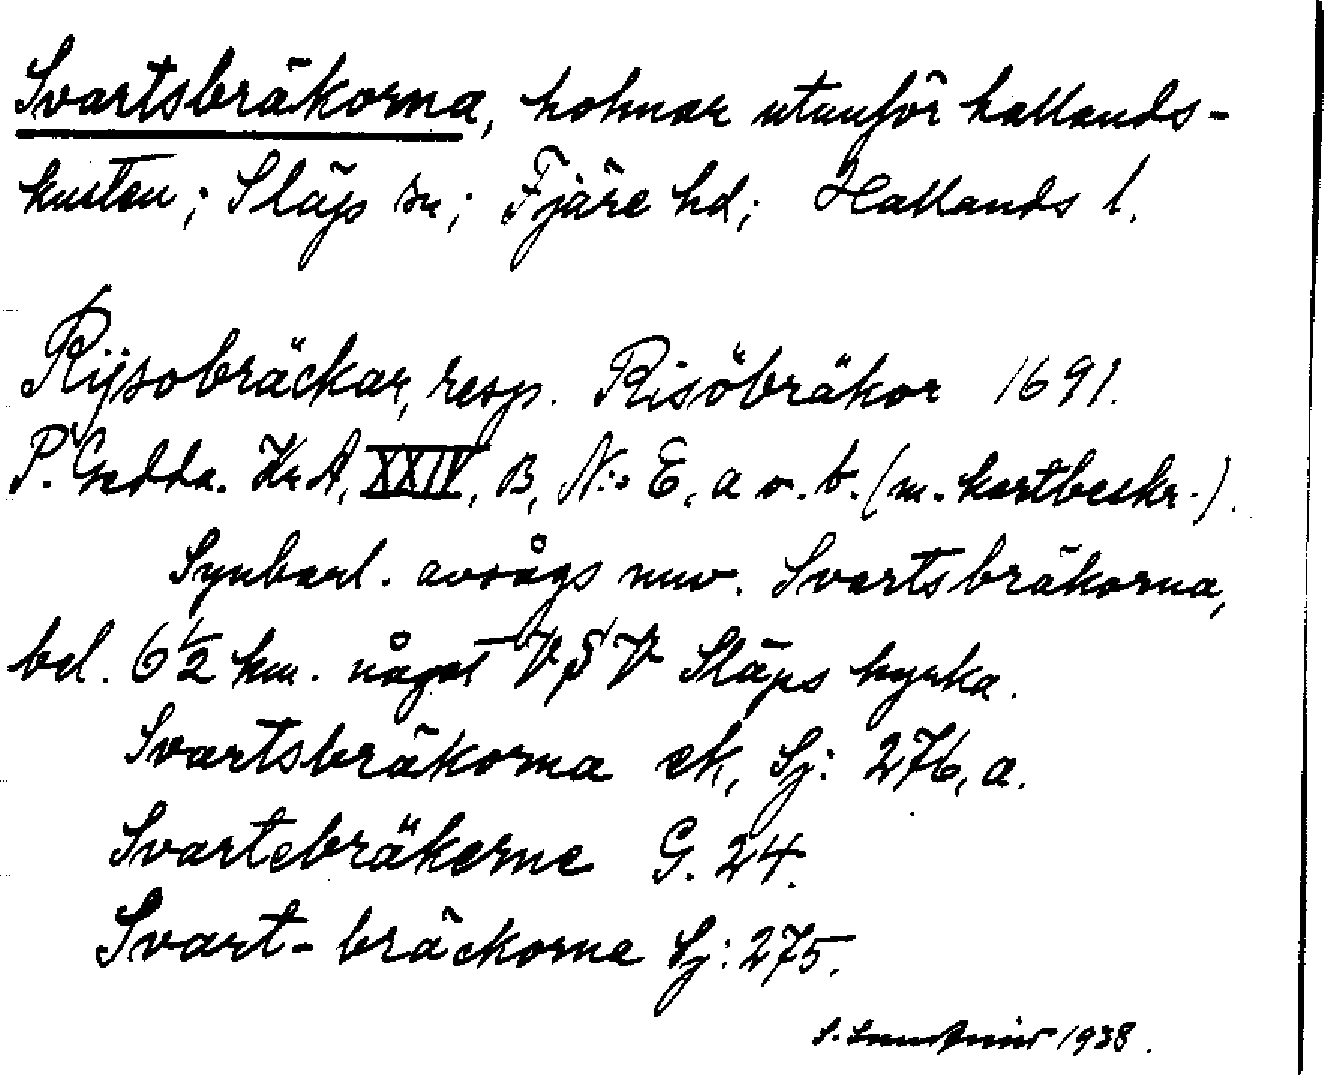 Svartsbräkorna, holmar utanför hallands-
kusten; Släp sn; Fjäre hd; Hallands l.
Rijsobräckar, resp. Risöbräkor 1691.
P. Gedda. Kr. A, XXIV, B, N:o E, a o. b. (m. kartbeskr.).
Synbarl. avsågs nuv. Svartsbräkorna,
bel. 6 1/2 km. något VSV Släps kyrka.
Svartsbräkorna ek, Sj: 276, a.
Svartebräkerne G. 24.
Svart-bräckorne Sj: 275.
S. 1938.